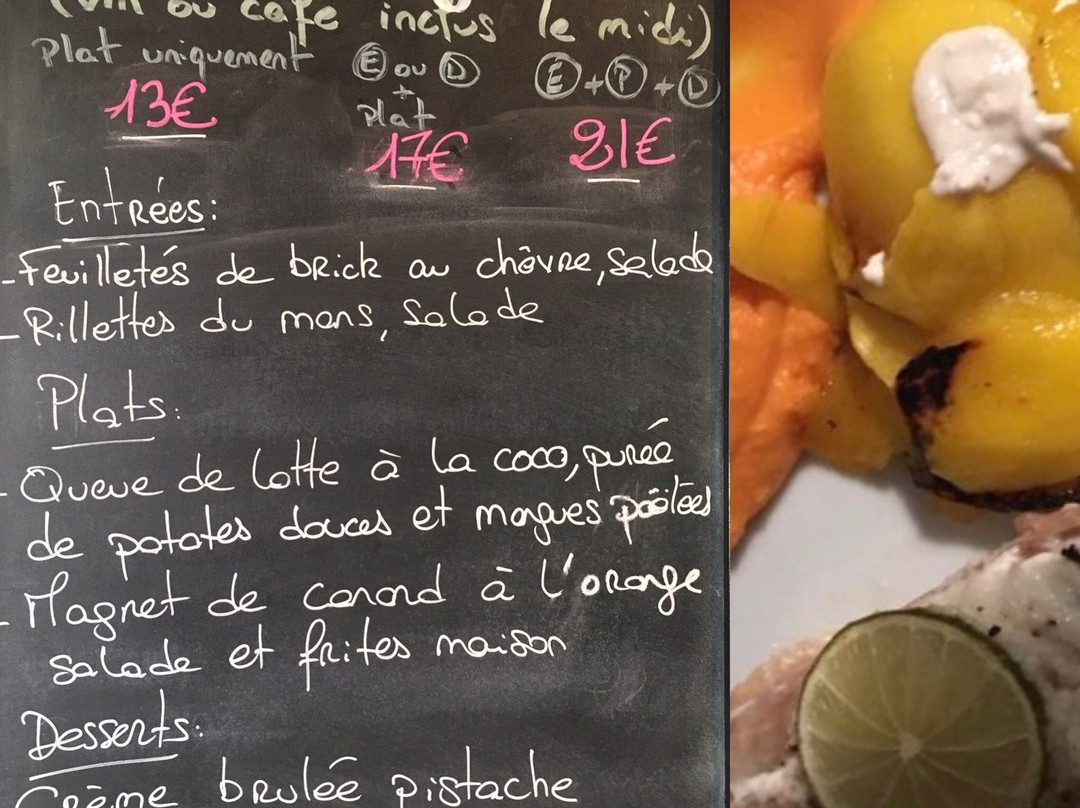 (vin ou café inclus le midi)
Plat uniquement
13€
E ou D
+
Plat
17€
E + P + D
21€
Entrées:
- Feuilletés de brick au chèvre, salade
- Rillettes du mans, salade
Plats:
- Queue de lotte à la coco, purée
de patates douces et mangues poêlées
- Magret de canard à l'orange
salade et frites maison
Desserts:
Crème brulée pistache